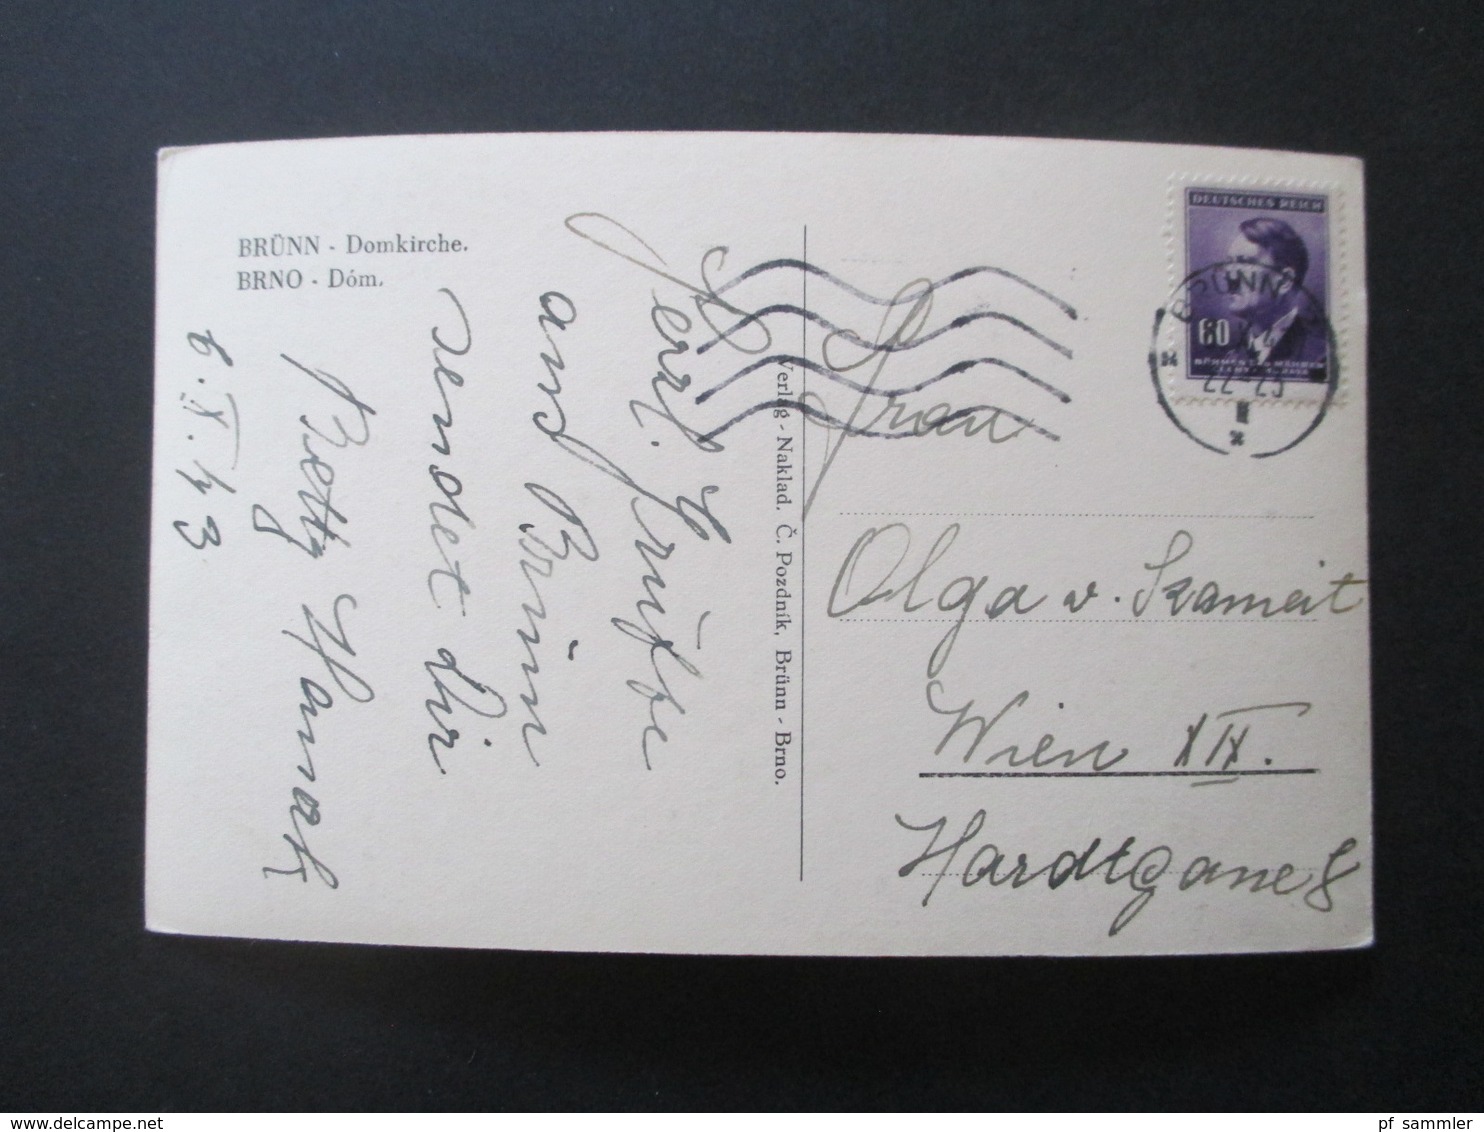 BRÜNN - Domkirche.
BRNO - Dóm.
Herzl. Grüße
aus Brünn
sendet dir
Betty Hanak
6. X. 43
Verlag - Naklad. Č. Pozdnik, Brünn - Brno.
DEUTSCHES REICH
60
BÖHMEN U. MÄHREN
BRÜNN
22-23
Frau
Olga v. Skameit
Wien XIX.
Hardtgasse 8
pf_sammler